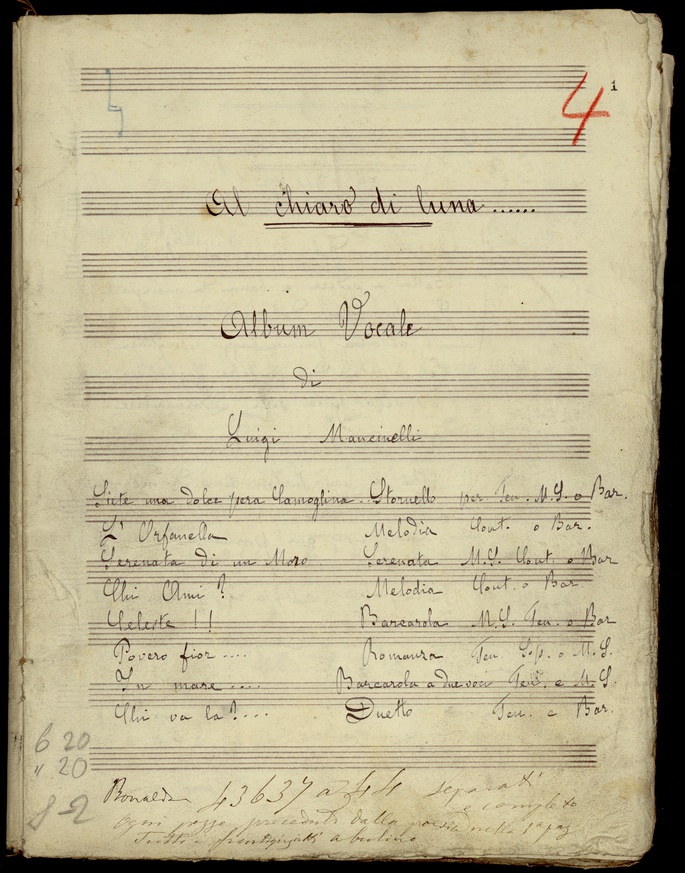 4 1
Al chiaro di luna ......
Album Vocale
di
Luigi Mancinelli
Siete una dolce pera Camoglina. Stornello per Ten. M.S. o Bar.
L'Orfanella Melodia Cont. o Bar.
Serenata di un Moro Serenata M.S. Cont. o Bar
Chi Ami? Melodia Cont. o Bar.
Celeste!! Barcarola M.S. Ten. o Bar
Povero fior .... Romanza Ten. Sop. o M.S.
In mare .... Barcarola a due voci Ten. e M.S.
Chi va la? ... Duetto Ten. e Bar.
6 20
" 20
43637 a 44 separati
e completo
ogni pezzo preceduto dalla poesia nella 1a pag
Tutti i frontispizi a bulino